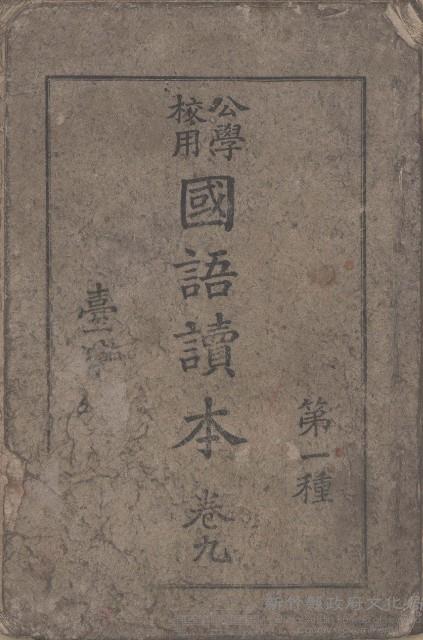 公學
校用
國語讀本 卷九
第一種
臺
新竹縣政府文化